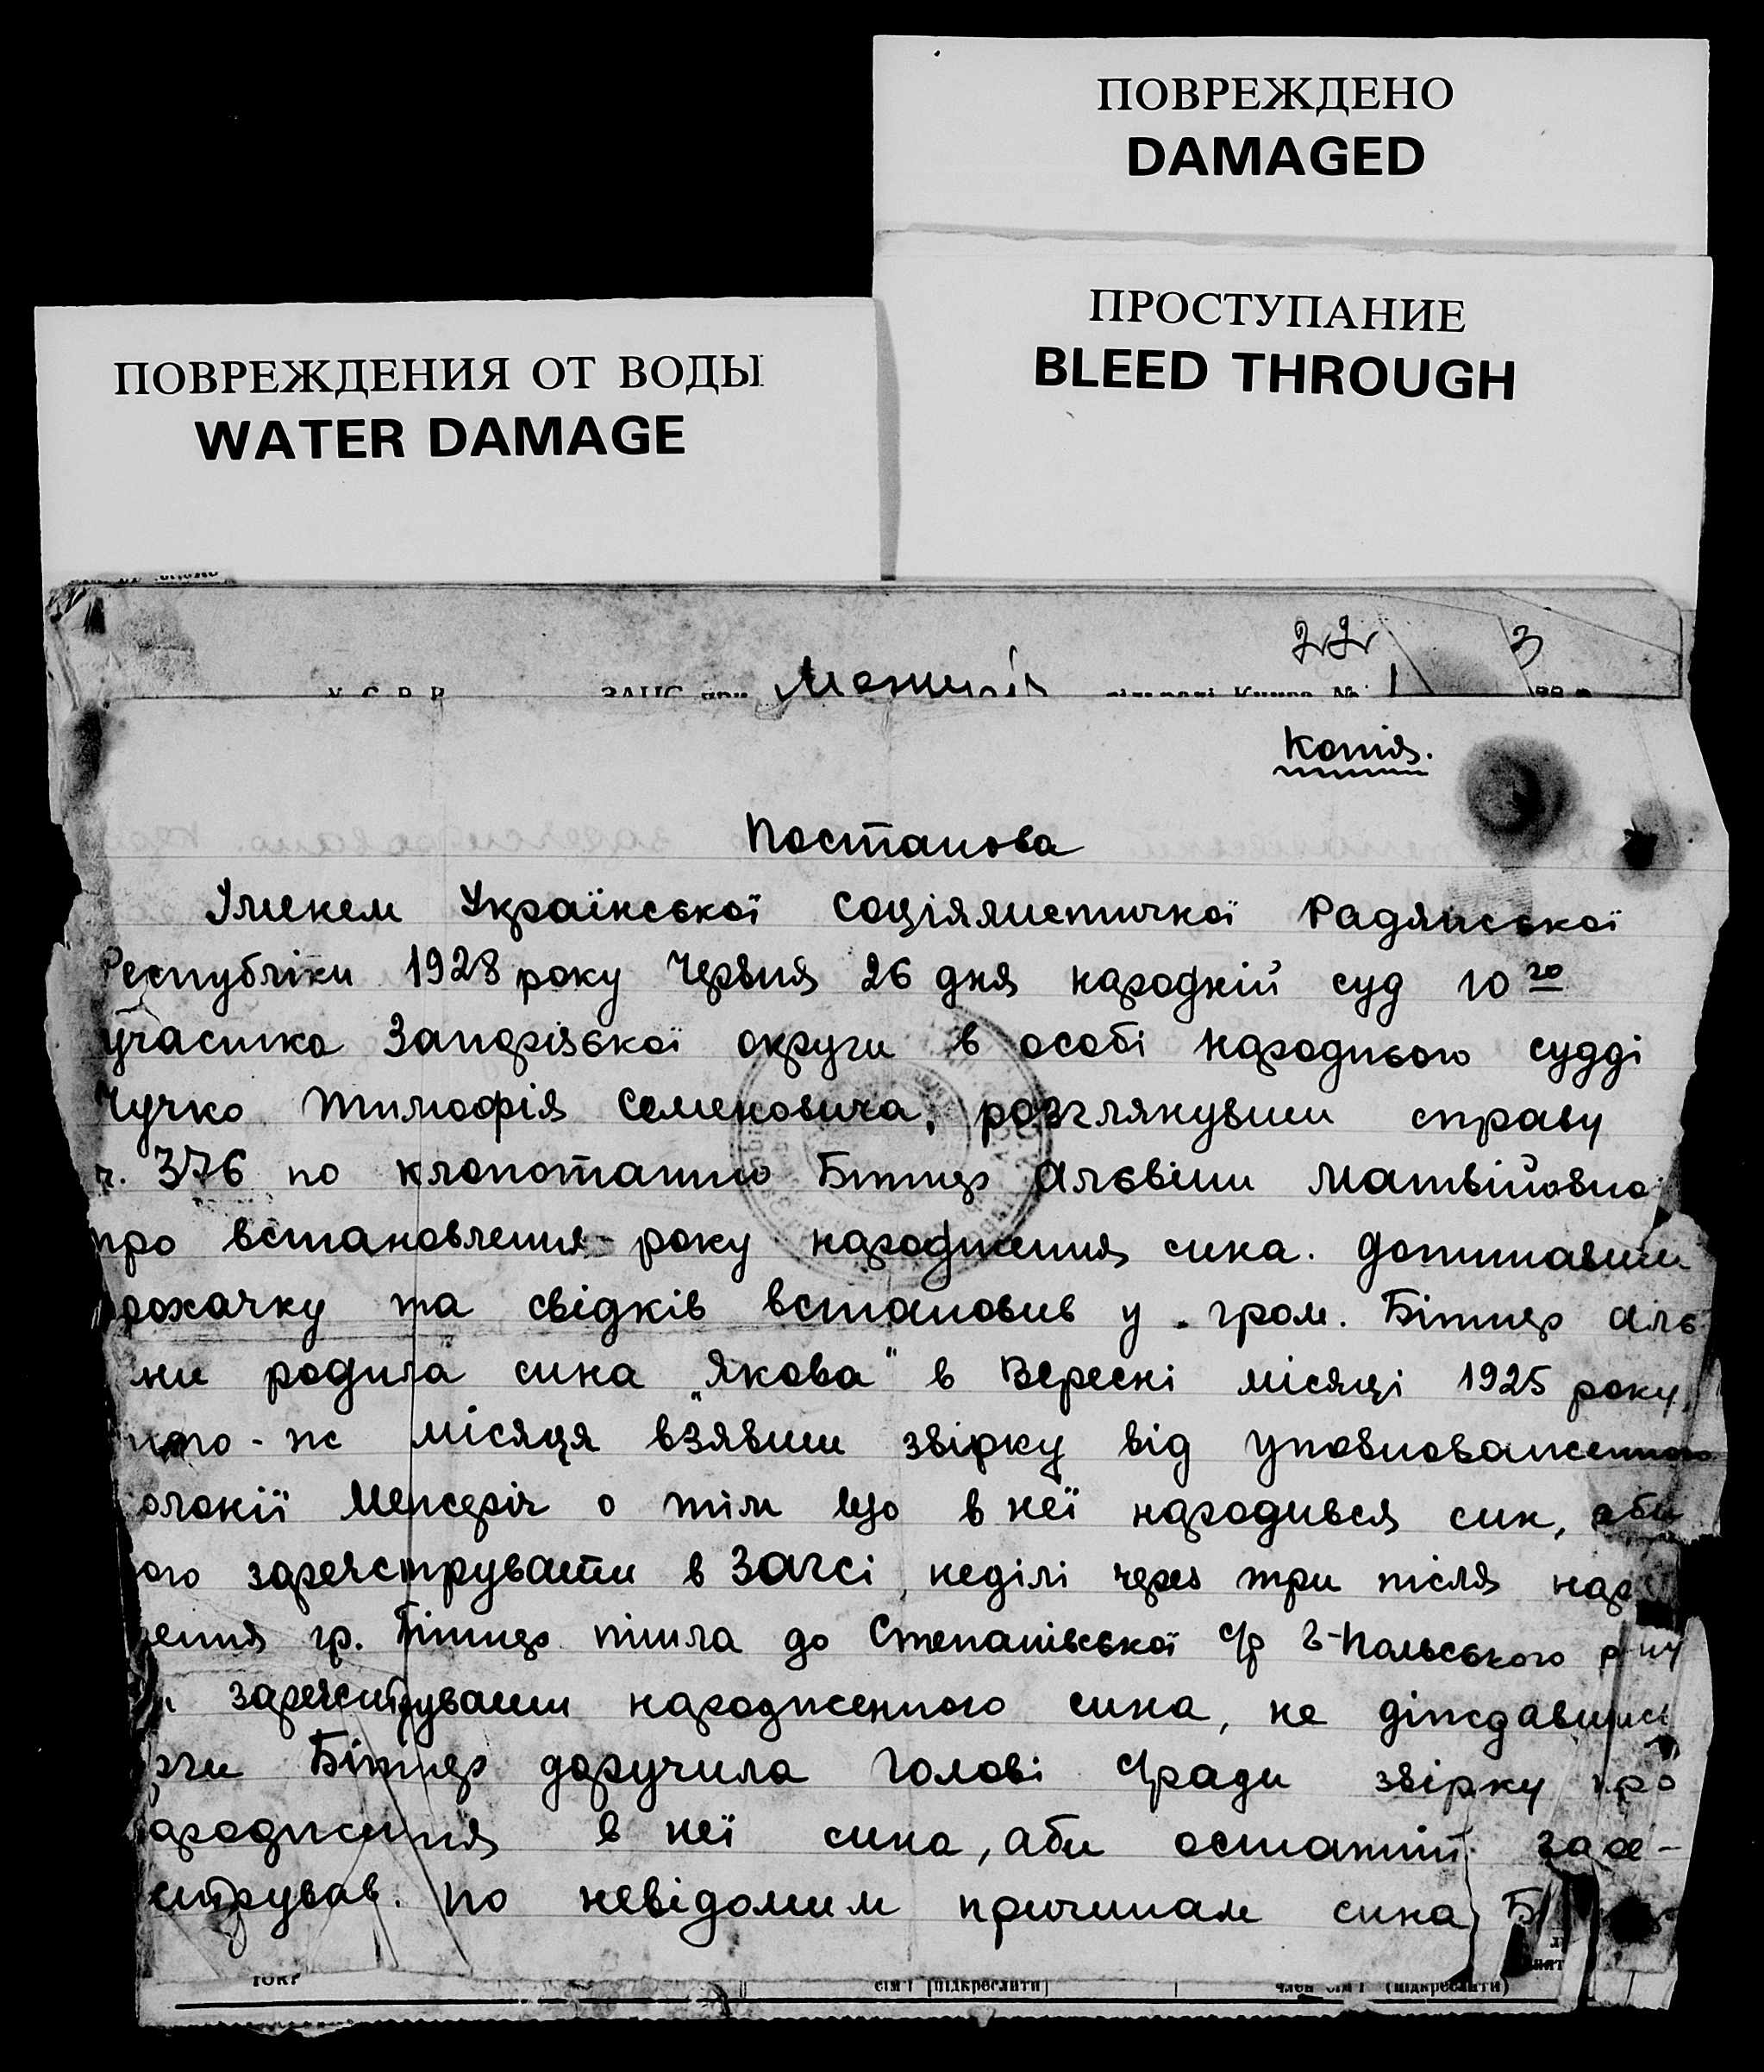 ПОВРЕЖДЕНО
DAMAGED
ПРОСТУПАНИЕ
BLEED THROUGH
ПОВРЕЖДЕНИЯ ОТ ВОДЫ
WATER DAMAGE
22 3
У.С.Р.Р. ЗАГС при Книга №
Копія.
Постанова
Іменем Української Соціялистичної Радянської
Республіки 1928 року Червня 26 дня народній суд 10го
участка Запорізької округи в особі народнього судді
Чучко Тимофія Семеновича, розглянувши справу
ч. 376 по клопотанню Бітнер Альвіни Матвійовно
про встановлення року народження сина. Допитавши
прохачку та свідків встановив у гром. Бітнер Аль
ни родила сина „Якова" в Вересні місяці 1925 року,
того-ж місяця взявши звірку від уповноваженного
олонії Межеріч о тім що в неї народився син, аби
ого зареєструвати в ЗАГСі, неділі через три після нар
ення гр. Бітнер пішла до Степанівської с/р В-Польського р-ну
зареєструвати народженного сина, не діждавшись
рги Бітнер доручила Голові с/ради звірку про
ародження в неї сина, аби останній заре-
стрував. По невідомим причинам сина Б
сім'ї [підкреслити] член сім'ї (підкреслити)